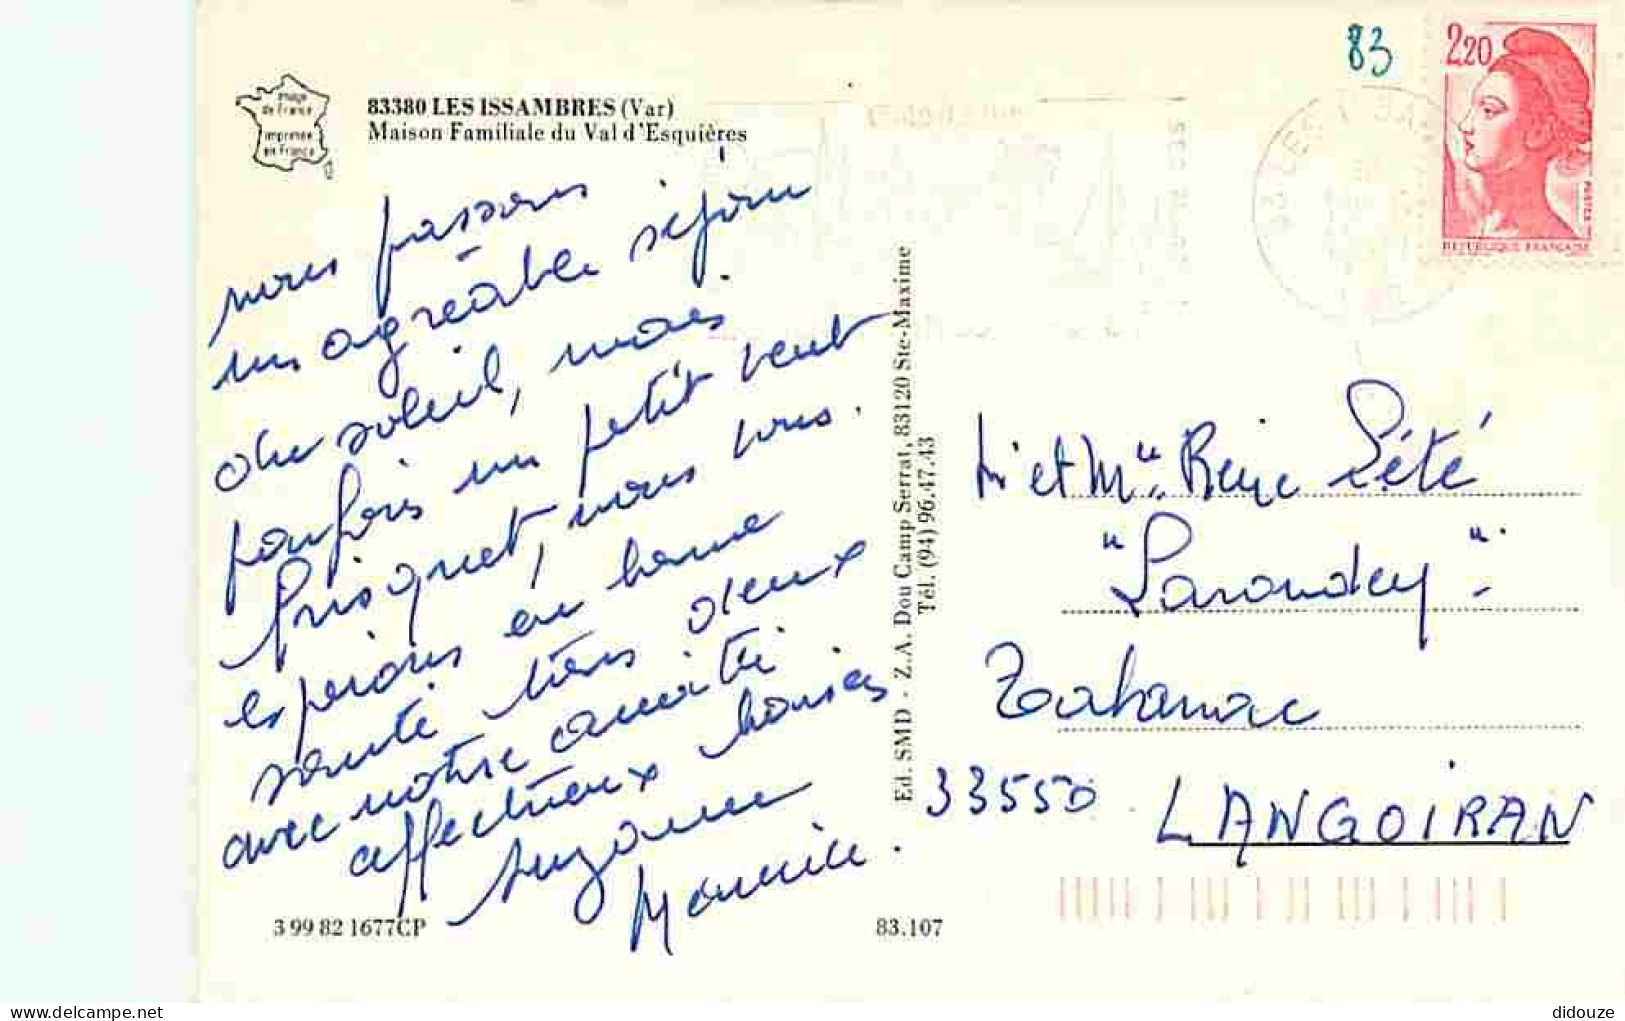 image
de France
imprimée
en France
83380 LES ISSAMBRES (Var)
Maison Familiale du Val d'Esquières
nous passons
un agréable séjour
du soleil, mais
parfois un petit vent
frisquet, nous vous
espérons en bonne
santé tous deux
avec notre amitié
affectueux baisers
Suzanne
Maurice.
3 99 82 1677CP
83.107
Ed. SMD - Z.A. Dou Camp Serrat, 83120 Ste-Maxime
Tél. (94) 96.47.43
83
2,20
POSTES
REPUBLIQUE FRANÇAISE
Mr et Mme Reine Lété
Tabanac
33550
LANGOIRAN
didouze